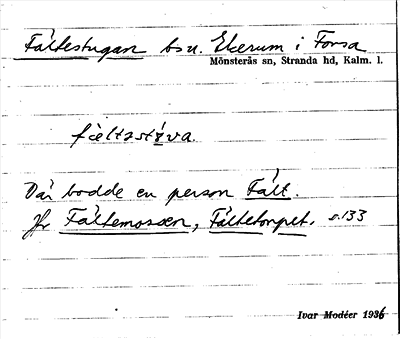 Fältestugan bs u. Ekerum i Forsa
Mönsterås sn, Stranda hd, Kalm. l.
fæltastúva.
Där bodde en person Fält.
Jfr Fältemossen, Fältetorpet. s. 133
Ivar Modéer 1936